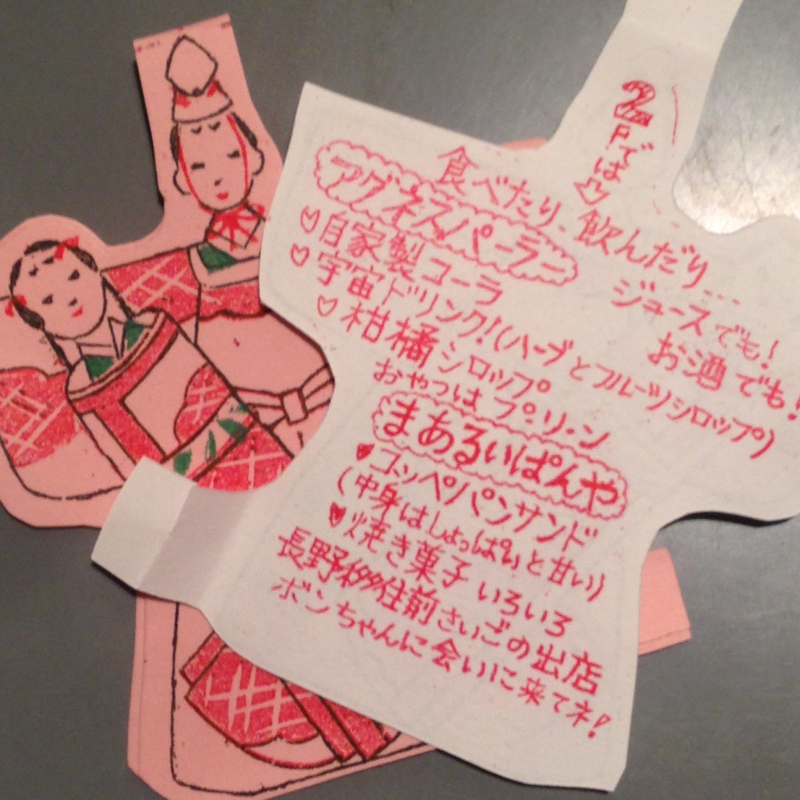 2Fでは
食べたり、飲んだり…
ジュースでも!
お酒でも!
アグネスパーラー
自家製コーラ
宇宙ドリンク!(ハーブとフルーツシロップ)
柑橘シロップ
おやつはプリン
まあるいぱんや
コッペパンサンド
(中身はしょっぱいと甘い)
焼き菓子いろいろ
長野移住前さいごの出店
ボンちゃんに会いに来てネ!